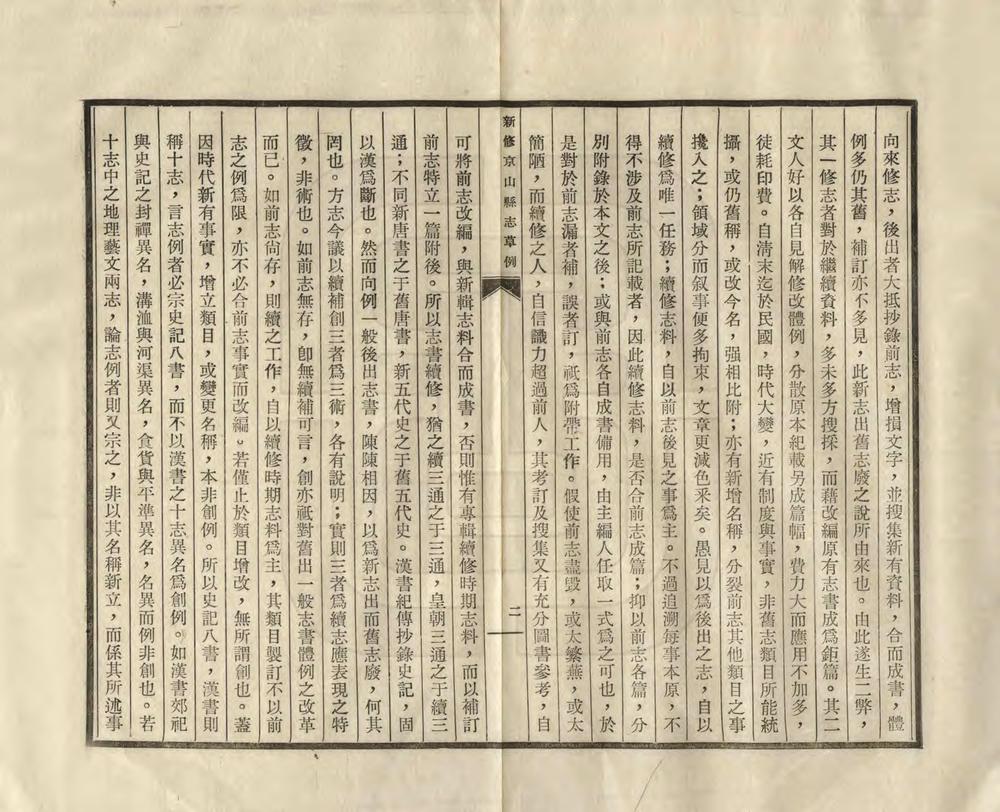 向來修志，後出者大抵抄錄前志，增損文字，並搜集新有資料，合而成書，體
例多仍其舊，補訂亦不多見，此新志出舊志廢之說所由來也。由此遂生二弊，
其一修志者對於繼續資料，多未多方搜採，而藉改編原有志書成爲鉅篇。其二
文人好以各自見解修改體例，分散原本紀載另成篇幅，費力大而應用不加多，
徒耗印費。自清末迄於民國，時代大變，近有制度與事實，非舊志類目所能統
攝，或仍舊稱，或改今名，强相比附；亦有新增名稱，分裂前志其他類目之事
攙入之；領域分而叙事便多拘束，文章更減色釆矣。愚見以爲後出之志，自以
續修爲唯一任務；續修志料，自以前志後見之事爲主。不過追溯每事本原，不
得不涉及前志所記載者，因此續修志料，是否合前志成篇；抑以前志各篇，分
別附錄於本文之後；或與前志各自成書備用，由主編人任取一式爲之可也，於
是對於前志漏者補，誤者訂，祇爲附帶工作。假使前志盡毁，或太繁蕪，或太
簡陋，而續修之人，自信識力超過前人，其考訂及搜集又有充分圖書參考，自
新修京山縣志草例
二
可將前志改編，與新輯志料合而成書，否則惟有專輯續修時期志料，而以補訂
前志特立一篇附後。所以志書續修，猶之續三通之于三通，皇朝三通之于續三
通；不同新唐書之于舊唐書，新五代史之于舊五代史。漢書紀傳抄錄史記，固
以漢爲斷也。然而向例一般後出志書，陳陳相因，以爲新志出而舊志廢，何其
罔也。方志今議以續補創三者爲三術，各有說明；實則三者爲續志應表現之特
徵，非術也。如前志無存，卽無續補可言，創亦祇對舊出一般志書體例之改革
而已。如前志尙存，則續之工作，自以續修時期志料爲主，其類目製訂不以前
志之例爲限，亦不必合前志事實而改編。若僅止於類目增改，無所謂創也。蓋
因時代新有事實，增立類目，或變更名稱，本非創例。所以史記八書，漢書則
稱十志，言志例者必宗史記八書，而不以漢書之十志異名爲創例。如漢書郊祀
與史記之封禪異名，溝洫與河渠異名，食貨與平準異名，名異而例非創也。若
十志中之地理藝文兩志，論志例者則又宗之，非以其名稱新立，而係其所述事